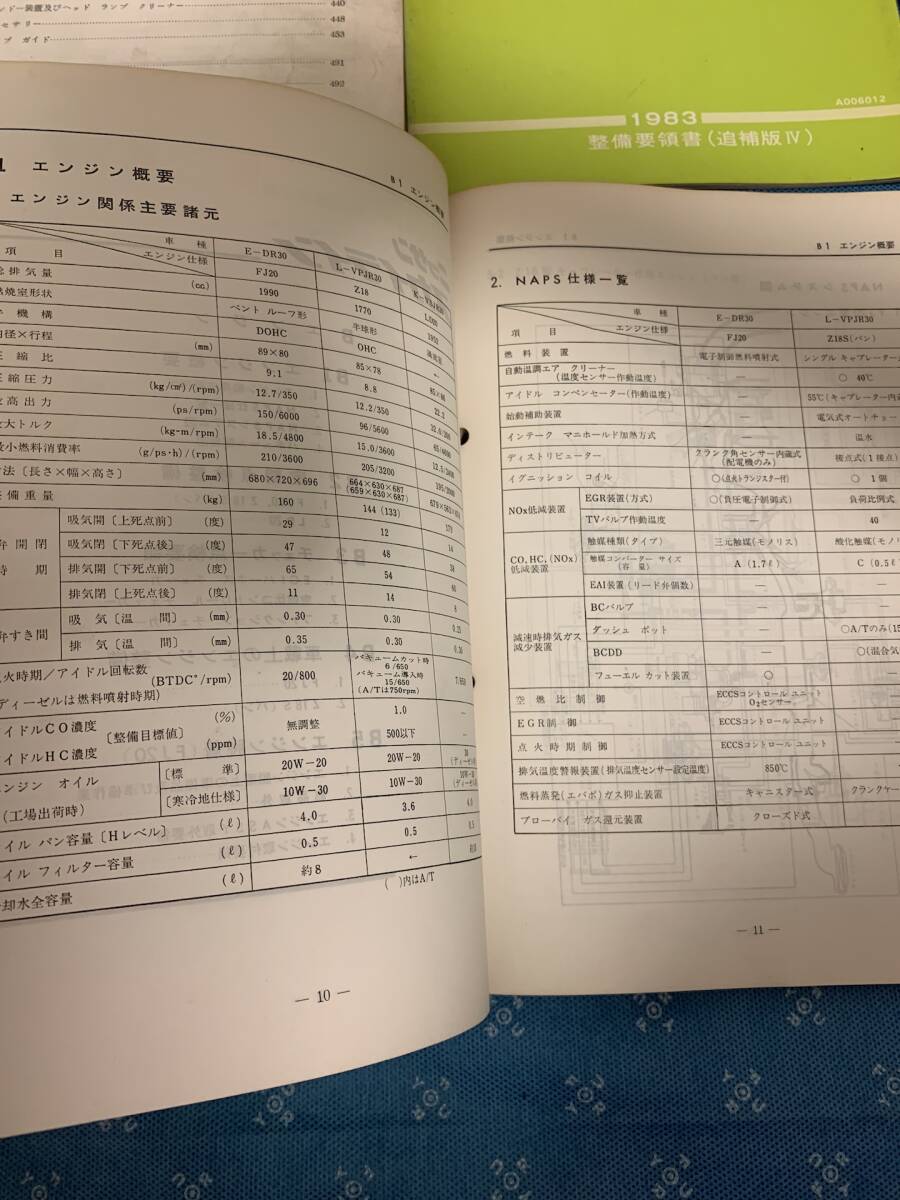 ンドー装置及びヘッド ランプ クリーナー 440
セサリー 448
プ ガイド 453
491
492
A006012
1983
整備要領書(追補版Ⅳ)
B1 エンジン概要
1 エンジン概要
エンジン関係主要諸元
車種 E-DR30 L-VPJR30 K-VSJR30
項目 エンジン仕様 FJ20 Z18
総排気量 (cc) 1990 1770 1952
燃焼室形状 ペント ルーフ形 半球形
機構 DOHC OHC ←
内径×行程 (mm) 89×80 85×78
圧縮比 9.1 8.8 22.2
圧縮圧力 (kg/cm²)/(rpm) 12.7/350 12.2/350
最高出力 (ps/rpm) 150/6000 96/5600 65/4600
最大トルク (kg-m/rpm) 18.5/4800 15.0/3600
最小燃料消費率 (g/ps·h)/(rpm) 210/3600 205/3200
寸法〔長さ×幅×高さ〕 (mm) 680×720×696 664×630×687
(659×630×687)
整備重量 (kg) 160 144 (133)
弁開閉時期 吸気開〔上死点前〕 (度) 29 12
吸気閉〔下死点後〕 (度) 47 48
排気開〔下死点前〕 (度) 65 54
排気閉〔上死点後〕 (度) 11 14
弁すき間 吸気〔温間〕 (mm) 0.30 0.25
排気〔温間〕 (mm) 0.35 0.30
点火時期/アイドル回転数 (BTDC°/rpm) 20/800 バキュームカット時
6/650
バキューム導入時
15/650
(A/Tは750rpm)
(ディーゼルは燃料噴射時期)
アイドルCO濃度 〔整備目標値〕 (%) 無調整 1.0 —
アイドルHC濃度 (ppm) 500以下 —
エンジン オイル 〔標準〕 20W-20 20W-20
(工場出荷時) 〔寒冷地仕様〕 10W-30 10W-30
オイル パン容量〔Hレベル〕 (ℓ) 4.0 3.6
オイル フィルター容量 (ℓ) 0.5 0.5
冷却水全容量 (ℓ) 約8 ←
( )内はA/T
— 10 —
B1 エンジン概要
2. NAPS仕様一覧
車種 E-DR30 L-VPJR30
項目 エンジン仕様 FJ20 Z18S(バン)
燃料装置 電子制御燃料噴射式 シングル キャブレーター
自動温調エア クリーナー
(温度センサー作動温度) — ○ 40℃
アイドル コンペンセーター(作動温度) — 55℃(キャブレーター内
始動補助装置 — 電気式オートチョー
インテーク マニホールド加熱方式 — 温水
ディストリビューター クランク角センサー内蔵式
(配電機のみ) 接点式(1接点)
イグニッション コイル ○(点火トランジスター付) ○ 1個
NOx低減装置 EGR装置(方式) ○(負圧電子制御式) 負荷比例式
TVバルブ作動温度 — 40
CO, HC, (NOx)
低減装置 触媒種類(タイプ) 三元触媒(モノリス) 酸化触媒(モノ
触媒コンバーター サイズ
(容量) A (1.7ℓ) C (0.5ℓ
EAI装置(リード弁個数) — —
減速時排気ガス
減少装置 BCバルブ — —
ダッシュ ポット — ○A/Tのみ(15
BCDD — ○(混合気
フューエル カット装置 ○ —
空燃比制御 ECCSコントロール ユニット
O₂センサー —
EGR制御 ECCSコントロール ユニット —
点火時期制御 ECCSコントロール ユニット —
排気温度警報装置(排気温度センサー設定温度) 850℃
燃料蒸発(エバポ)ガス抑止装置 キャニスター式 クランクケー
ブローバイ ガス還元装置 クローズド式
— 11 —
FOR YOU